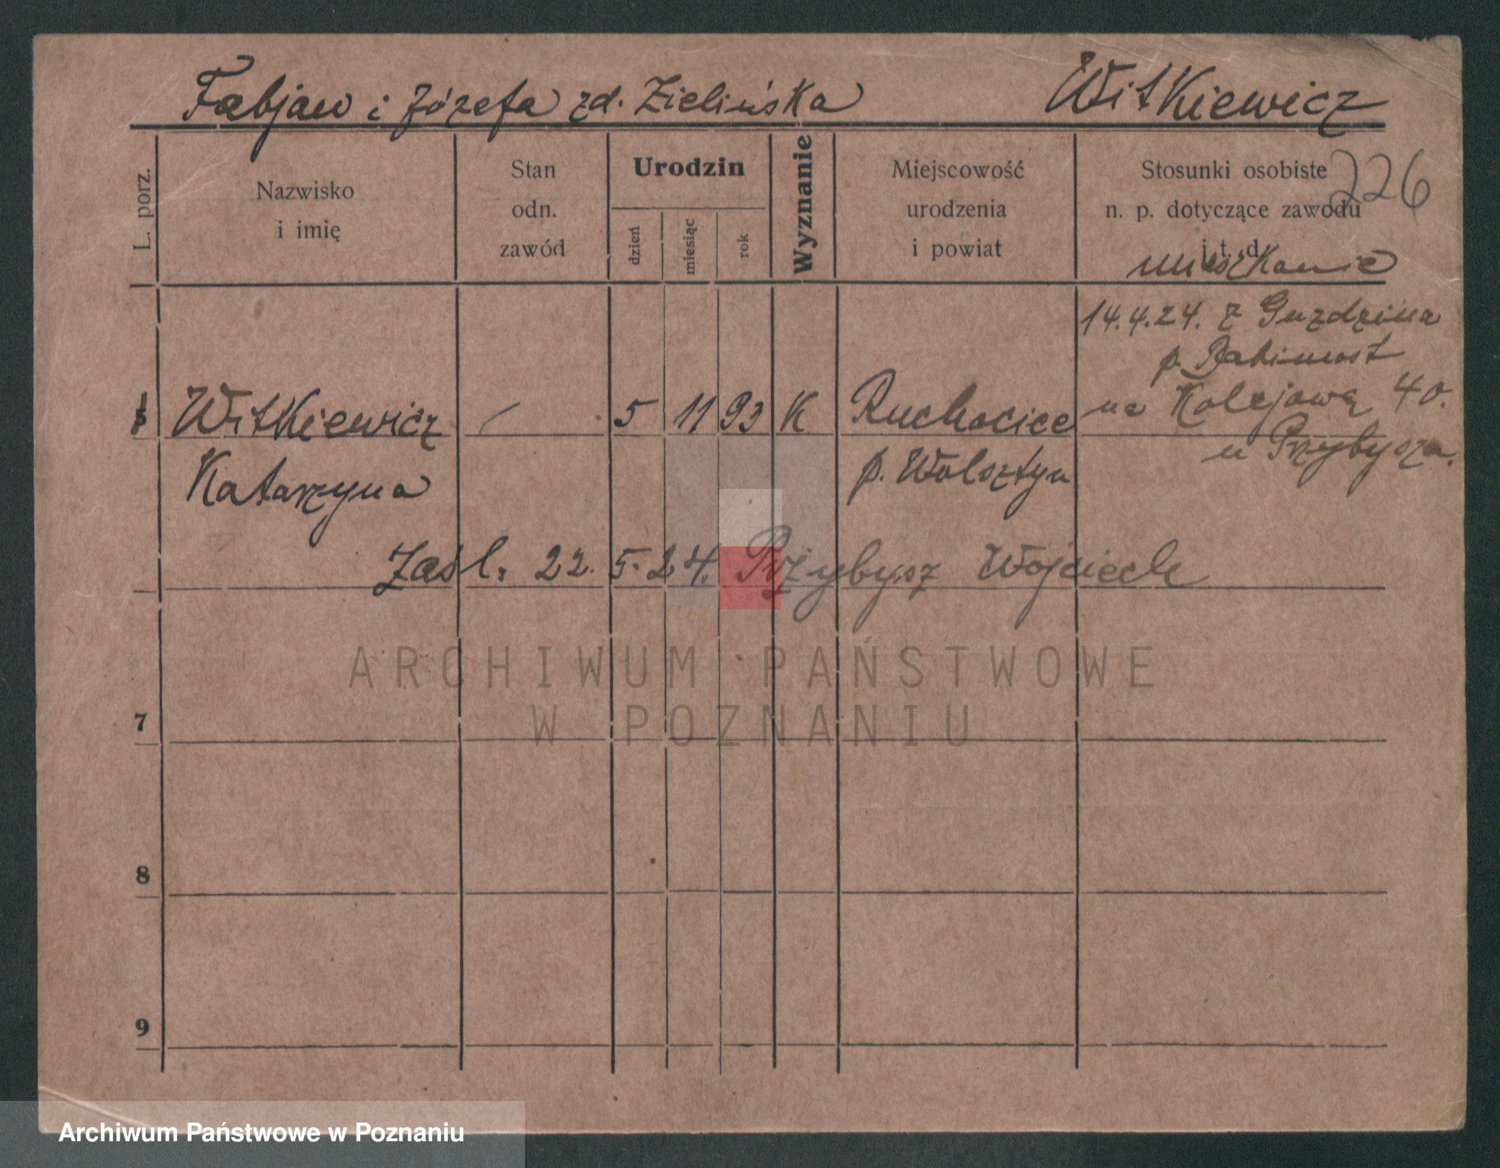 Fabjan i Józefa zd. Zielińska Witkiewicz
226
L. porz.
Nazwisko
i imię
Stan
odn.
zawód
Urodzin
dzień
miesiąc
rok
Wyznanie
Miejscowość
urodzenia
i powiat
Stosunki osobiste
n. p. dotyczące zawodu
i t. d.
14.4.24. z
p. Babimost
Witkiewicz 5 11 93 K Ruchocice na Kolejową 40.
Katarzyna p. Wolsztyn u Przybysza.
Zaśl. 22. 5. 24. Przybysz Wojciech
ARCHIWUM PAŃSTWOWE
W POZNANIU
7
8
9
Archiwum Państwowe w Poznaniu